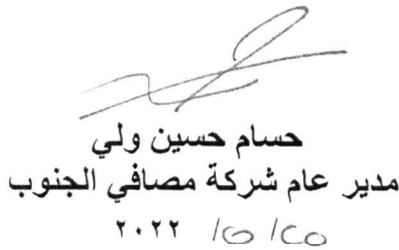 حسام حسين ولي
مدير عام شركة مصافي الجنوب
٢٥/ ٥/ ٢٠٢٢